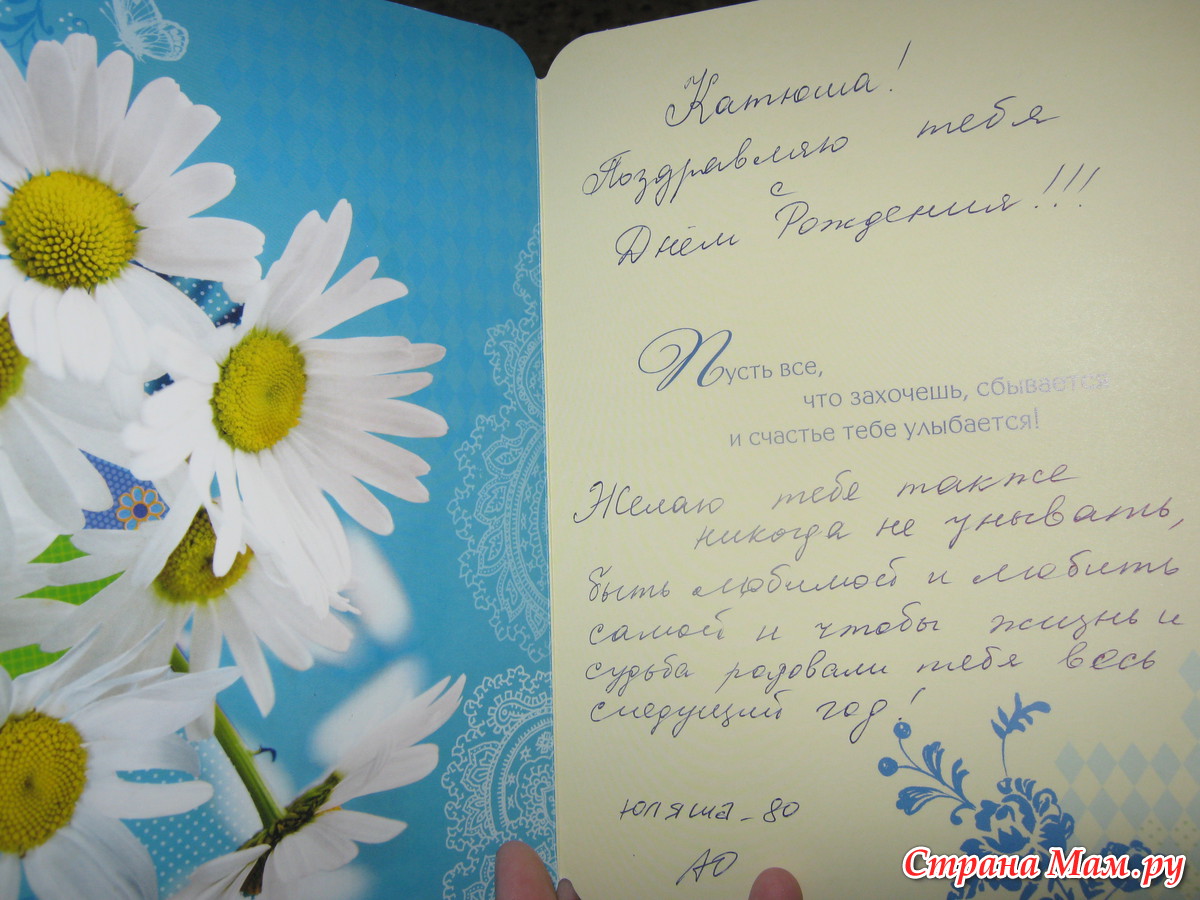 Катюша!
Поздравляю тебя
с
Днём Рождения!!!
Пусть все,
что захочешь, сбывается
и счастье тебе улыбается!
Желаю тебе также
никогда не унывать,
быть любимой и любить
самой и чтобы жизнь и
судьба радовали тебя весь
следующий год!
Юляша-80
АЮ
Страна Мам.ру